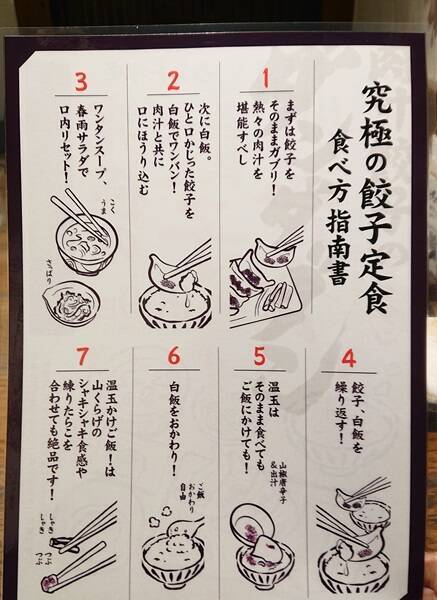 究極の餃子定食
食べ方指南書
1
まずは餃子を
そのままガブリ!
熱々の肉汁を
堪能すべし
2
次に白飯。
ひと口かじった餃子を
白飯でワンバン!
肉汁と共に
口にほうり込む
3
ワンタンスープ、
春雨サラダで
口内リセット!
こく
うま
さっぱり
4
餃子、白飯を
繰り返す!
5
温玉は
そのまま食べても
ご飯にかけても!
山椒唐辛子
&出汁
6
白飯をおかわり!
ご飯
おかわり
自由
7
温玉かけご飯!は
山くらげの
シャキシャキ食感や
練りたらこを
合わせても絶品です!
しゃき
しゃき
つぶ
つぶ